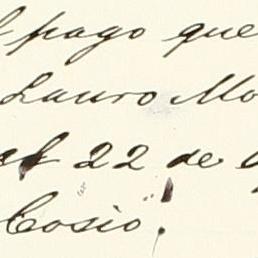 pago que
Lauro Mo
el 22 de
Cosio.